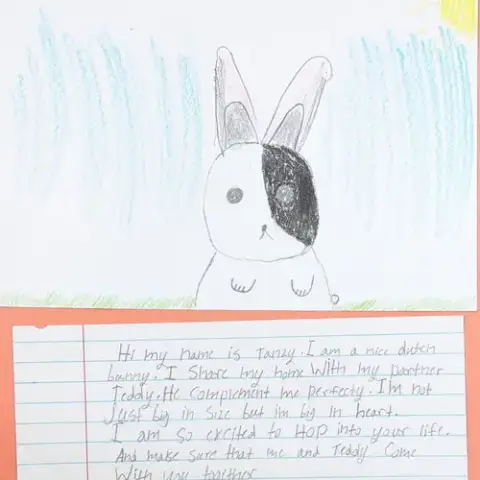 Hi my name is Tanzy. I am a nice dutch
bunny. I Share my home With my partner
Teddy. He Complement me perfecty. I'm not
Just big in Size but im big in heart.
I am so excited to HOP into your life.
And make sure that me and Teddy Come
With you together